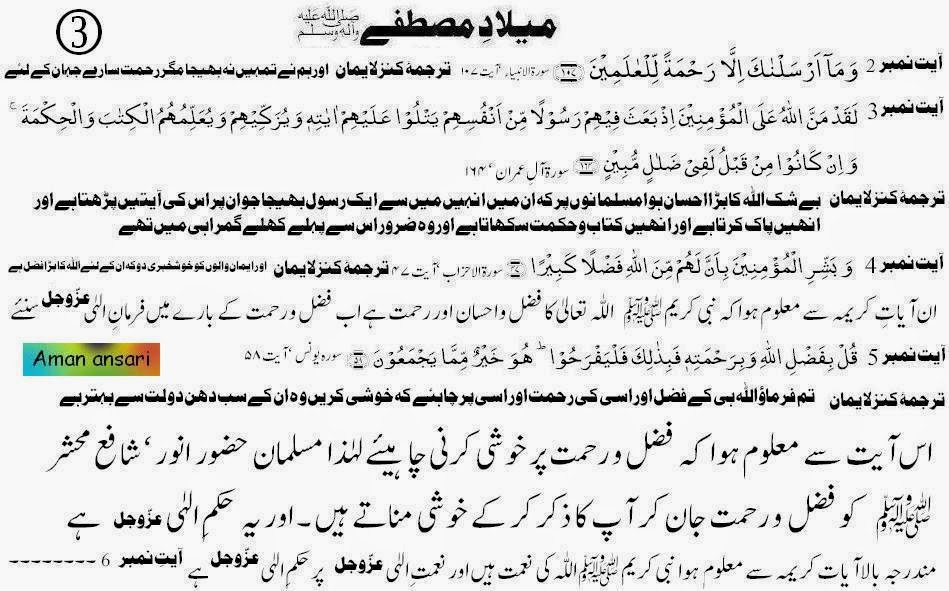 ③ میلادِ مصطفےٰ صلی اللہ علیہ وآلہ وسلم
آیت نمبر 2 وَمَاۤ اَرْسَلْنٰكَ اِلَّا رَحْمَةً لِّلْعٰلَمِیْنَ ﴿۱۰۷﴾ سورۃ الانبیاء، آیت ۱۰۷ ترجمۂ کنزلایمان اور ہم نے تمہیں نہ بھیجا مگر رحمت سارے جہان کے لئے
آیت نمبر 3 لَقَدْ مَنَّ اللّٰهُ عَلَى الْمُؤْمِنِیْنَ اِذْ بَعَثَ فِیْهِمْ رَسُوْلًا مِّنْ اَنْفُسِهِمْ یَتْلُوْا عَلَیْهِمْ اٰیٰتِهٖ وَ یُزَكِّیْهِمْ وَ یُعَلِّمُهُمُ الْكِتٰبَ وَ الْحِكْمَةَ ۚ
وَ اِنْ كَانُوْا مِنْ قَبْلُ لَفِیْ ضَلٰلٍ مُّبِیْنٍ ﴿۱۶۴﴾ سورۃ آلِ عمران ، ۱۶۴
ترجمۂ کنزلایمان بے شک اللہ کا بڑا احسان ہوا مسلمانوں پر کہ ان میں انہیں میں سے ایک رسول بھیجا جو ان پر اس کی آیتیں پڑھتا ہے اور
انھیں پاک کرتا ہے اور انھیں کتاب و حکمت سکھاتا ہے اور وہ ضرور اس سے پہلے کھلے گمراہی میں تھے
آیت نمبر 4 وَ بَشِّرِ الْمُؤْمِنِیْنَ بِاَنَّ لَهُمْ مِّنَ اللّٰهِ فَضْلًا كَبِیْرًا ﴿۴۷﴾ سورۃ الاحزاب، آیت ۴۷ ترجمۂ کنزلایمان اور ایمان والوں کو خوشخبری دو کہ ان کے لئے اللہ کا بڑا فضل ہے
ان آیاتِ کریمہ سے معلوم ہوا کہ نبی کریم ﷺ اللہ تعالیٰ کا فضل و احسان اور رحمت ہے اب فضل و رحمت کے بارے میں فرمانِ الٰہی عزّوجل سنئے
آیت نمبر 5 قُلْ بِفَضْلِ اللّٰهِ وَ بِرَحْمَتِهٖ فَبِذٰلِكَ فَلْیَفْرَحُوْا ؕ هُوَ خَیْرٌ مِّمَّا یَجْمَعُوْنَ ﴿۵۸﴾ سورہ یونس ، آیت ۵۸ Aman ansari
ترجمۂ کنزلایمان تم فرماؤ اللہ ہی کے فضل اور اسی کی رحمت اور اسی پر چاہئے کہ خوشی کریں وہ ان کے سب دھن دولت سے بہتر ہے
اس آیت سے معلوم ہوا کہ فضل و رحمت پر خوشی کرنی چاہیئے لہٰذا مسلمان حضور انور ، شافع محشر
ﷺ کو فضل و رحمت جان کر آپ کا ذکر کر کے خوشی مناتے ہیں ۔ اور یہ حکمِ الٰہی عزّوجل ہے
مندرجہ بالا آیات کریمہ سے معلوم ہوا نبی کریم ﷺ اللہ کی نعمت ہیں اور نعمتِ الٰہی عزّوجل پر حکمِ الٰہی عزّوجل ہے آیت نمبر 6 ---------